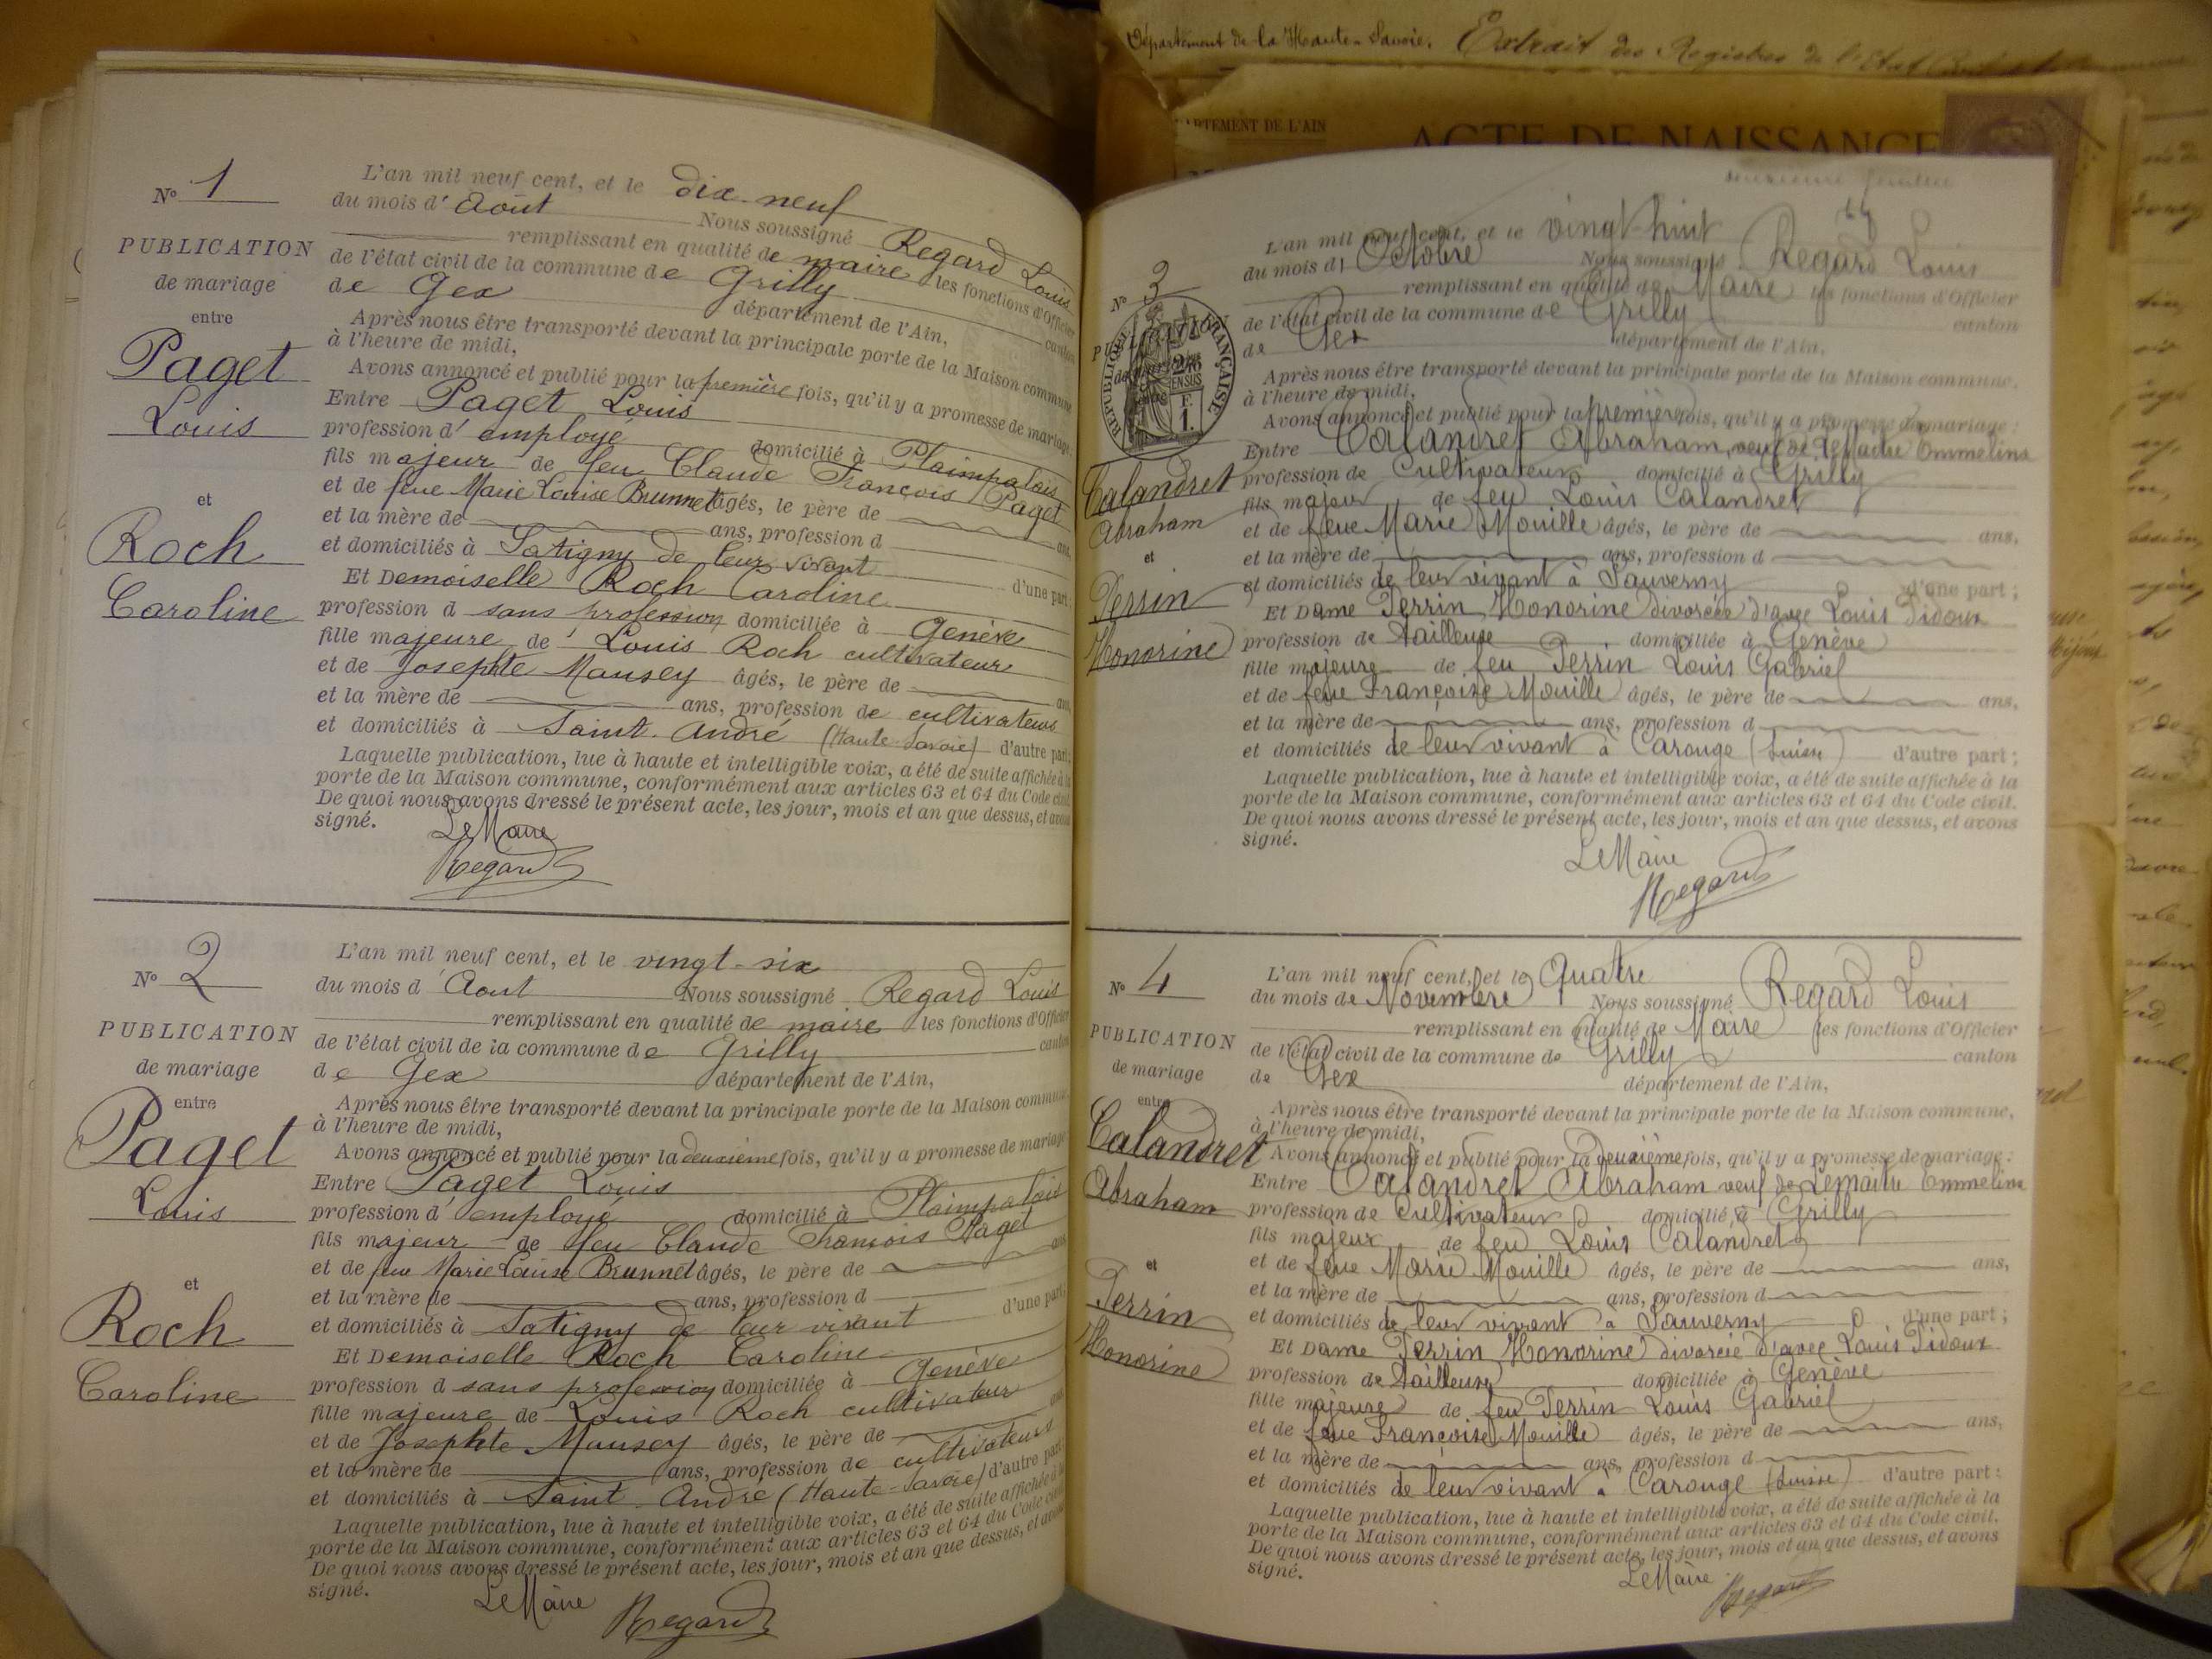 Département de la Haute-Savoie. Extrait des Registres de l'Etat Civil
PARTEMENT DE L'AIN
ACTE DE NAISSANCE
N° 1
PUBLICATION
de mariage
entre
Paget
Louis
et
Roch
Caroline
L'an mil neuf cent, et le dix-neuf
du mois d'Août Nous soussigné Regard Louis
remplissant en qualité de maire les fonctions d'Officier
de l'état civil de la commune de Grilly canton
de Gex département de l'Ain,
Après nous être transporté devant la principale porte de la Maison commune
à l'heure de midi,
Avons annoncé et publié pour la première fois, qu'il y a promesse de mariage:
Entre Paget Louis
profession d'employé domicilié à Plainpalais
fils majeur de feu Claude François Paget
et de feue Marie Louise Brunnet âgés, le père de ans,
et la mère de ans, profession d
et domiciliés à Satigny de leur vivant d'une part;
Et Demoiselle Roch Caroline
profession d sans profession domiciliée à Genève
fille majeure de Louis Roch cultivateur
et de Josephte Mausey âgés, le père de ans,
et la mère de ans, profession de cultivateurs
et domiciliés à Saint-André (Haute-Savoie) d'autre part;
Laquelle publication, lue à haute et intelligible voix, a été de suite affichée à la
porte de la Maison commune, conformément aux articles 63 et 64 du Code civil.
De quoi nous avons dressé le présent acte, les jour, mois et an que dessus, et avons
signé.
Le Maire
Regard
N° 2
PUBLICATION
de mariage
entre
Paget
Louis
et
Roch
Caroline
L'an mil neuf cent, et le vingt-six
du mois d'Aout Nous soussigné Regard Louis
remplissant en qualité de maire les fonctions d'Officier
de l'état civil de la commune de Grilly canton
de Gex département de l'Ain,
Après nous être transporté devant la principale porte de la Maison commune,
à l'heure de midi,
Avons annoncé et publié pour la deuxième fois, qu'il y a promesse de mariage
Entre Paget Louis
profession d'employé domicilié à Plainpalais
fils majeur de feu Claude François Paget
et de feue Marie Louise Brunnet âgés, le père de ans
et la mère de ans, profession d
et domiciliés à Satigny de leur vivant d'une part;
Et Demoiselle Roch Caroline
profession d sans profession domiciliée à Genève
fille majeure de Louis Roch cultivateur
et de Josephte Mausey âgés, le père de ans
et la mère de ans, profession de cultivateurs
et domiciliés à Saint-André (Haute-Savoie) d'autre part;
Laquelle publication, lue à haute et intelligible voix, a été de suite affichée à la
porte de la Maison commune, conformément aux articles 63 et 64 du Code civil
De quoi nous avons dressé le présent acte, les jour, mois et an que dessus, et avons
signé.
Le Maire
Regard
N° 3
PUBLICATION
de mariage
entre
RÉPUBLIQUE FRANÇAISE
2/10
EN SUS
F.
1.
Calandret
Abraham
et
Perrin
Honorine
L'an mil neuf cent, et le vingt-huit
du mois d'Octobre Nous soussigné Regard Louis
remplissant en qualité de Maire les fonctions d'Officier
de l'état civil de la commune de Grilly canton
de Gex département de l'Ain,
Après nous être transporté devant la principale porte de la Maison commune,
à l'heure de midi,
Avons annoncé et publié pour la première fois, qu'il y a promesse de mariage:
Entre Calandret Abraham, veuf de Lemaitre Emmeline
profession de Cultivateur domicilié à Grilly
fils majeur de feu Louis Calandret
et de feue Marie Mouille âgés, le père de ans,
et la mère de ans, profession d
et domiciliés de leur vivant à Sauverny d'une part;
Et Dame Perrin Honorine divorcée d'avec Louis Pidoux
profession de tailleuse domiciliée à Genève
fille majeure de feu Perrin Louis Gabriel
et de feue Françoise Mouille âgés, le père de ans,
et la mère de ans, profession d
et domiciliés de leur vivant à Carouge (Suisse) d'autre part;
Laquelle publication, lue à haute et intelligible voix, a été de suite affichée à la
porte de la Maison commune, conformément aux articles 63 et 64 du Code civil.
De quoi nous avons dressé le présent acte, les jour, mois et an que dessus, et avons
signé.
Le Maire
Regard
N° 4
PUBLICATION
de mariage
entre
Calandret
Abraham
et
Perrin
Honorine
L'an mil neuf cent, et le Quatre
du mois de Novembre Nous soussigné Regard Louis
remplissant en qualité de Maire les fonctions d'Officier
de l'état civil de la commune de Grilly canton
de Gex département de l'Ain,
Après nous être transporté devant la principale porte de la Maison commune,
à l'heure de midi,
Avons annoncé et publié pour la deuxième fois, qu'il y a promesse de mariage:
Entre Calandret Abraham veuf de Lemaitre Emmeline
profession de Cultivateur domicilié à Grilly
fils majeur de feu Louis Calandret
et de feue Marie Mouille âgés, le père de ans,
et la mère de ans, profession d
et domiciliés de leur vivant à Sauverny d'une part;
Et Dame Perrin Honorine divorcée d'avec Louis Pidoux
profession de tailleuse domiciliée à Genève
fille majeure de feu Perrin Louis Gabriel
et de feue Françoise Mouille âgés, le père de ans,
et la mère de ans, profession d
et domiciliés de leur vivant à Carouge (Suisse) d'autre part;
Laquelle publication, lue à haute et intelligible voix, a été de suite affichée à la
porte de la Maison commune, conformément aux articles 63 et 64 du Code civil.
De quoi nous avons dressé le présent acte, les jour, mois et an que dessus, et avons
signé.
Le Maire
Regard